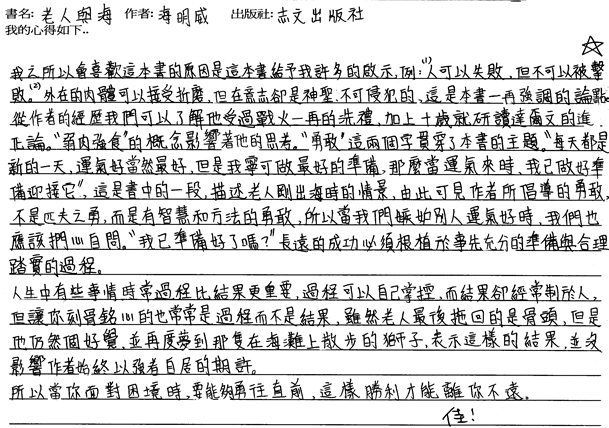 書名: 老人與海 作者: 海明威 出版社: 志文出版社
我的心得如下..
我之所以會喜歡這本書的原因是這本書給予我許多的啟示,例:(1)人可以失敗,但不可以被擊
敗。(2)外在的肉體可以接受折磨,但在意志卻是神聖不可侵犯的,這是本書一再強調的論點。
從作者的經歷我們可以了解他受過戰火一再的洗禮,加上十歲就研讀達爾文的進
化論。"弱肉強食"的概念影響著他的思考。"勇敢"這兩個字貫穿了本書的主題。"每天都是
新的一天,運氣好當然最好,但是我寧可做最好的準備,那麼當運氣來時,我已做好準
備迎接它",這是書中的一段,描述老人剛出海時的情景,由此可見作者所倡導的勇敢,
不是匹夫之勇,而是有智慧和方法的勇敢,所以當我們嫉妒別人運氣好時,我們也
應該捫心自問。"我已準備好了嗎?"長遠的成功必須根植於事先充分的準備與合理
踏實的過程。
人生中有些事情時常過程比結果更重要,過程可以自己掌控,而結果卻經常制於人,
但讓你刻骨銘心的也常常是過程而不是結果,雖然老人最後拖回的是骨頭,但是
他仍然個好覺,並再度夢到那隻在海灘上散步的獅子,表示這樣的結果,並沒
影響作者始終以強者自居的期許。
所以當你面對困境時,要能夠勇往直前,這樣勝利才能離你不遠。
佳!